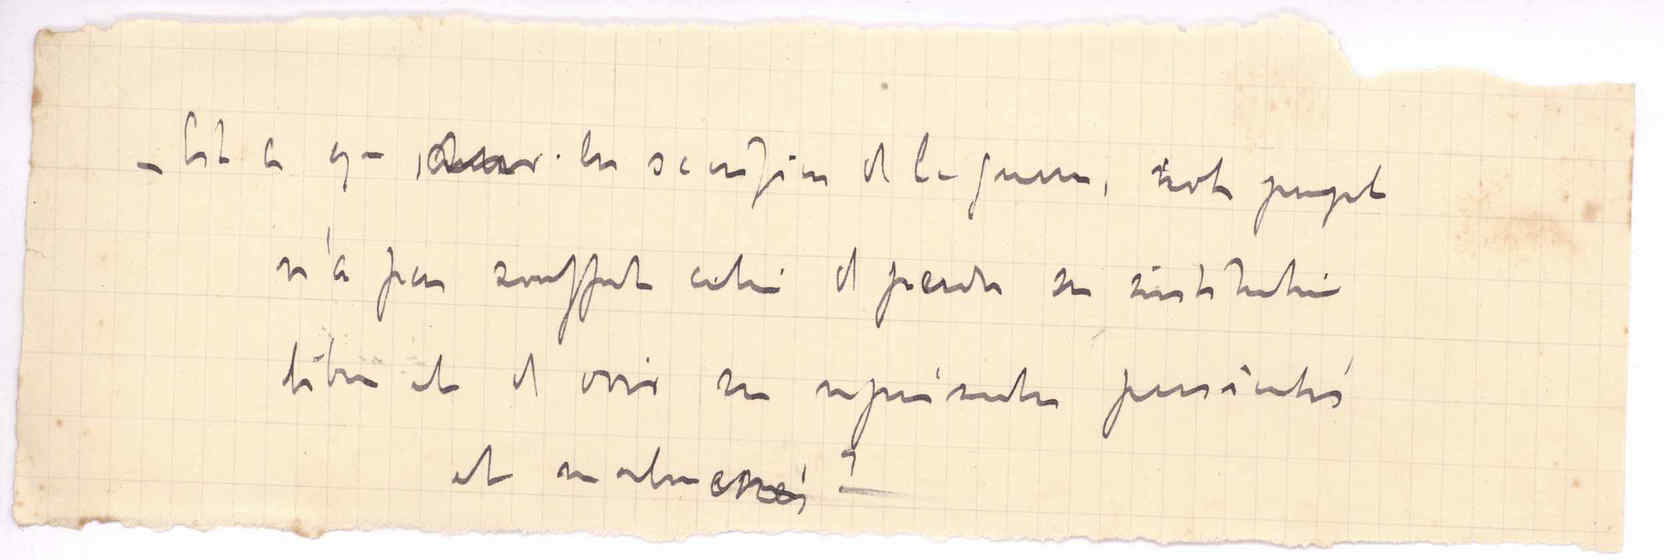 - Est ce que les sacrifices de la guerre, notre peuple
n'a pas souffert celui de perdre ses institutions
libres et de voir ses représentants persécutés
et